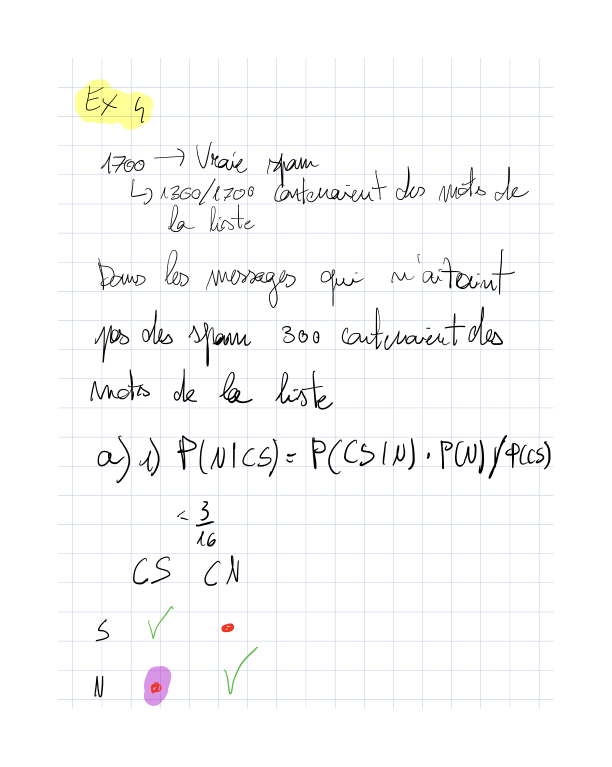 Ex 4
1700 → Vraie spam
↳ 1300/1700 contenaient des mots de
la liste
Dans les messages qui n'aitaint
pas des spam 300 contenaient des
mots de la liste
a) i) P(N|CS) = P(CS|N) · P(N) / P(CS)
= 3/16
CS CN
S ✓ •
N • ✓